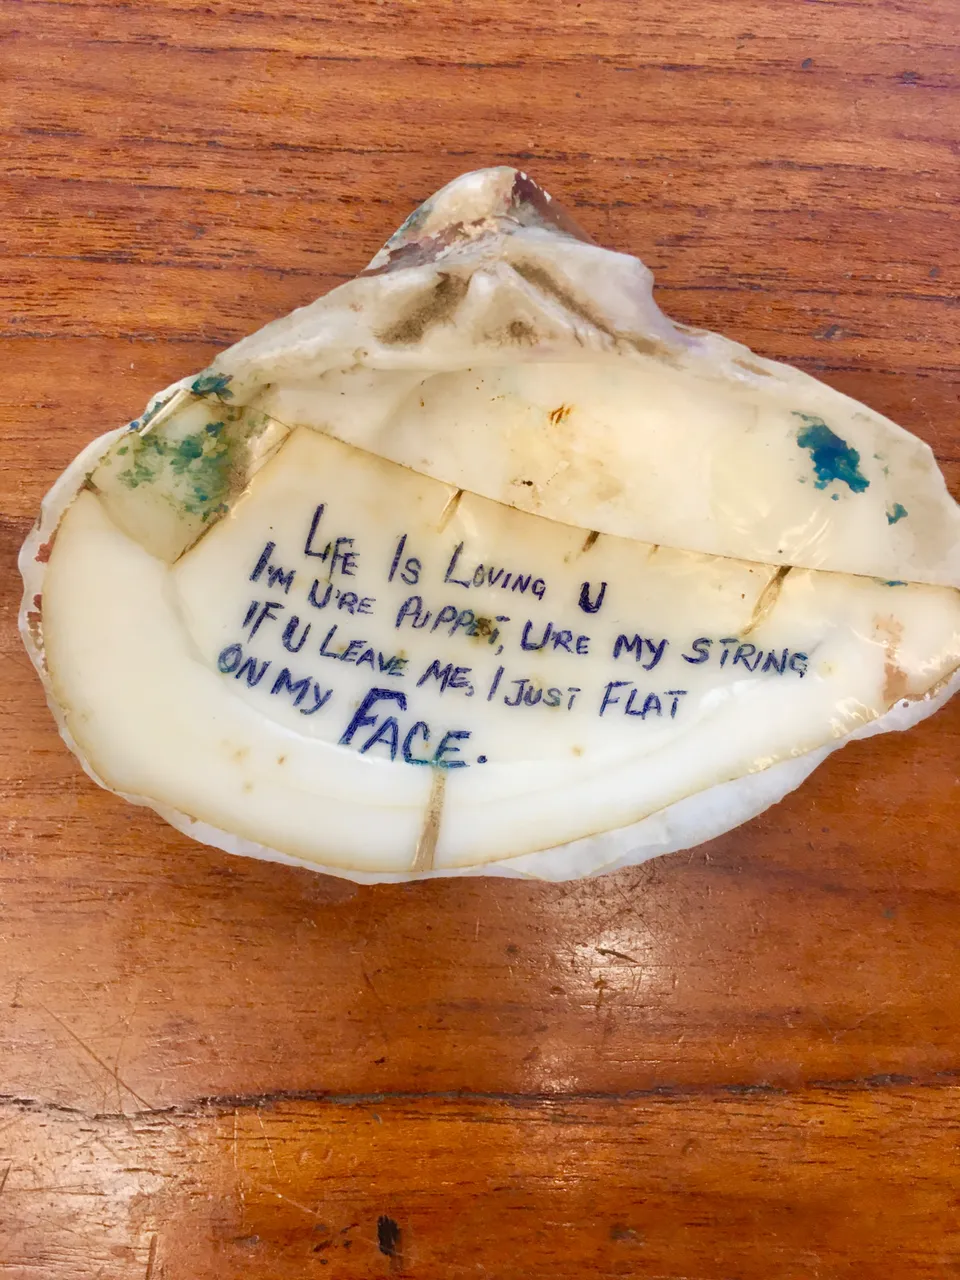 LIFE IS LOVING U
I'M U'RE PUPPET, URE MY STRING
IF U LEAVE ME, I JUST FLAT
ON MY FACE.